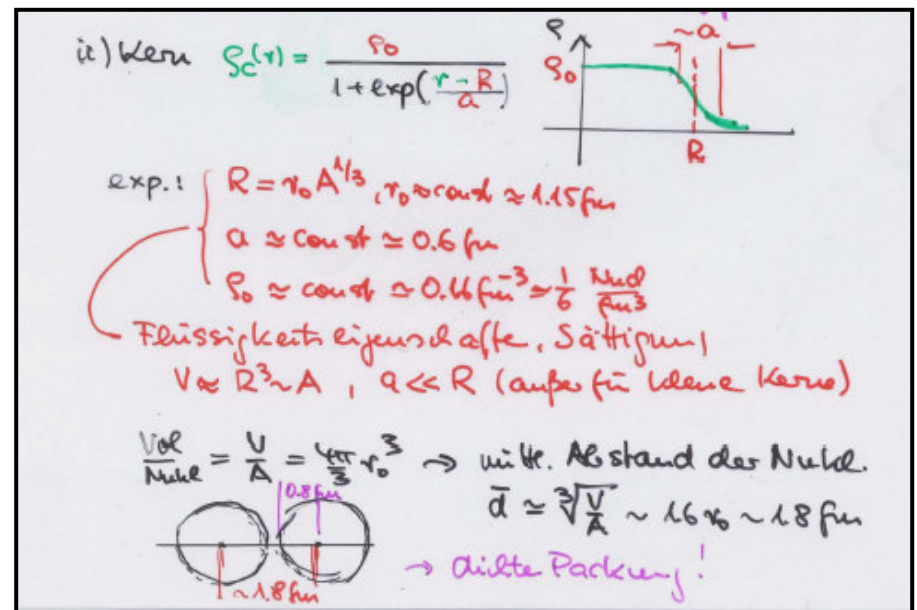 ii) Kern ρc(r) = ρ0 / (1 + exp((r - R)/a))
ρ
~a
ρ0
R
exp.: R = r0 A^1/3, r0 ≈ const ≃ 1.15 fm
a ≃ const ≃ 0.6 fm
ρ0 ≃ const ≃ 0.16 fm^-3 ≃ 1/6 Nucl/fm^3
Flüssigkeitseigenschafte, Sättigung
V ∝ R^3 ~ A, a << R (außer für kleine Kerne)
Vol/Nukl = V/A = 4π/3 r0^3 → mitt. Abstand der Nukl.
d̄ ≃ ∛(V/A) ~ 1.6 r0 ~ 1.8 fm
0.8 fm
~1.8 fm
→ dichte Packung!